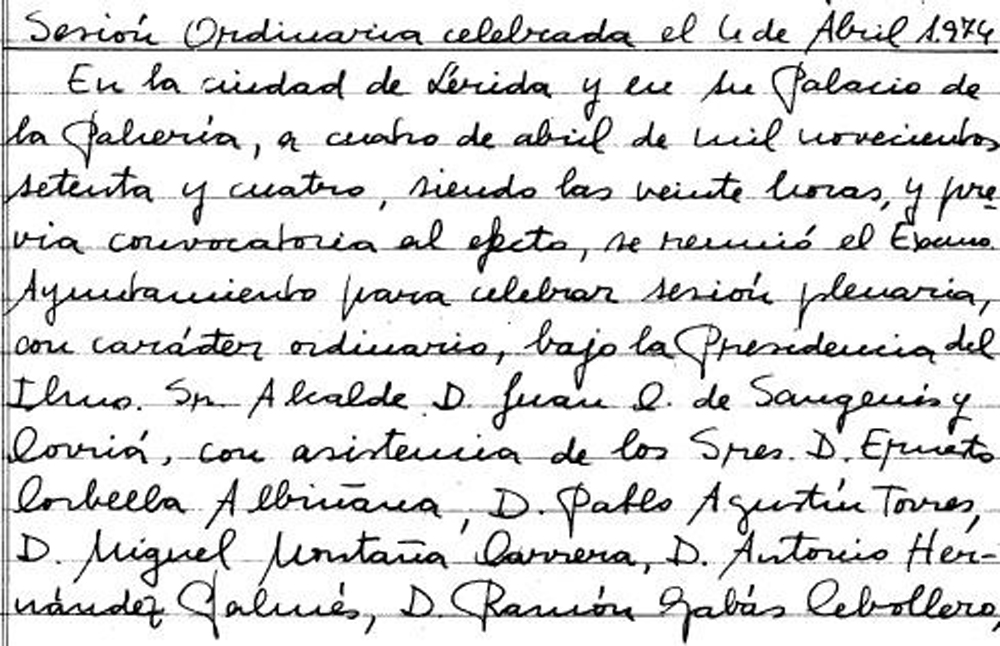 Sesión Ordinaria celebrada el 4 de Abril 1.974
En la ciudad de Lérida y en su Palacio de
la Pahería, a cuatro de abril de mil novecientos
setenta y cuatro, siendo las veinte horas, y pre-
via convocatoria al efecto, se reunió el Excmo.
Ayuntamiento para celebrar sesión plenaria,
con carácter ordinario, bajo la Presidencia del
Ilmo. Sr. Alcalde D. Juan C. de Sangenís y
Corriá, con asistencia de los Sres. D. Ernesto
Corbella Albiñana, D. Pablo Agustín Torres,
D. Miguel Montaña Carrera, D. Antonio Her-
nández Palmés, D. Ramón Gabás Cebollero,